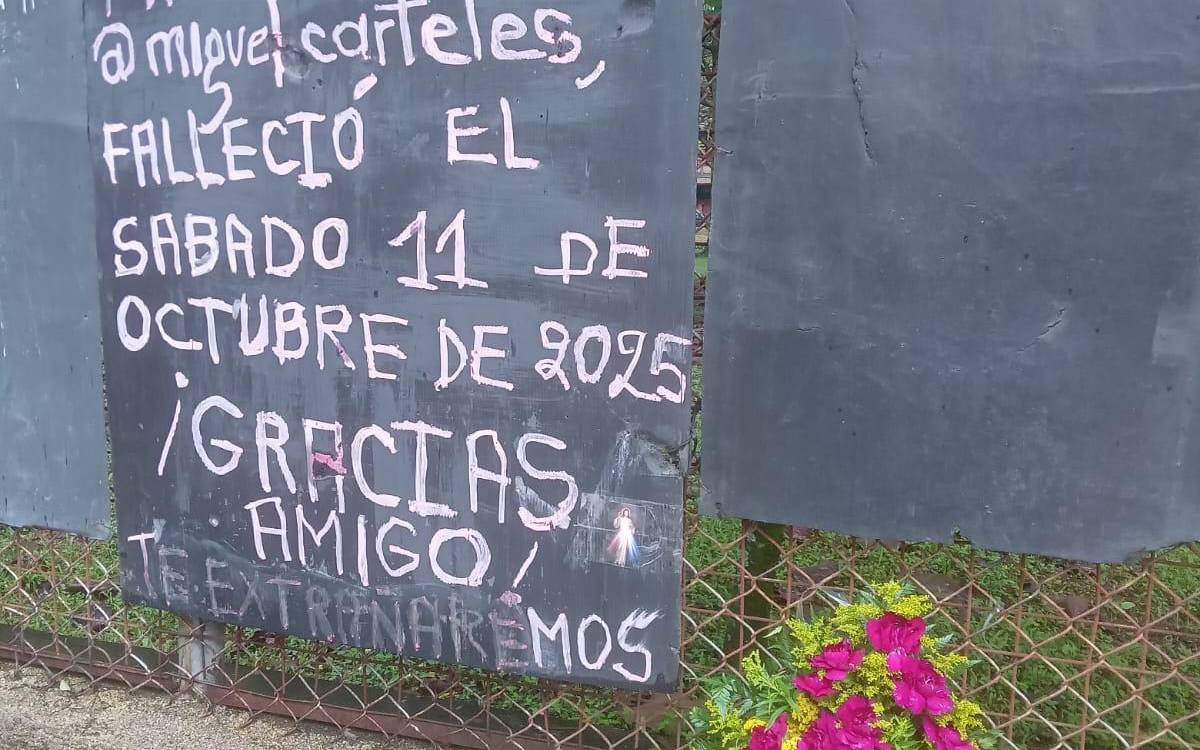 @miguelcarteles,
FALLECIÓ EL
SABADO 11 DE
OCTUBRE DE 2025
¡GRACIAS
AMIGO!
TE EXTRAÑAREMOS